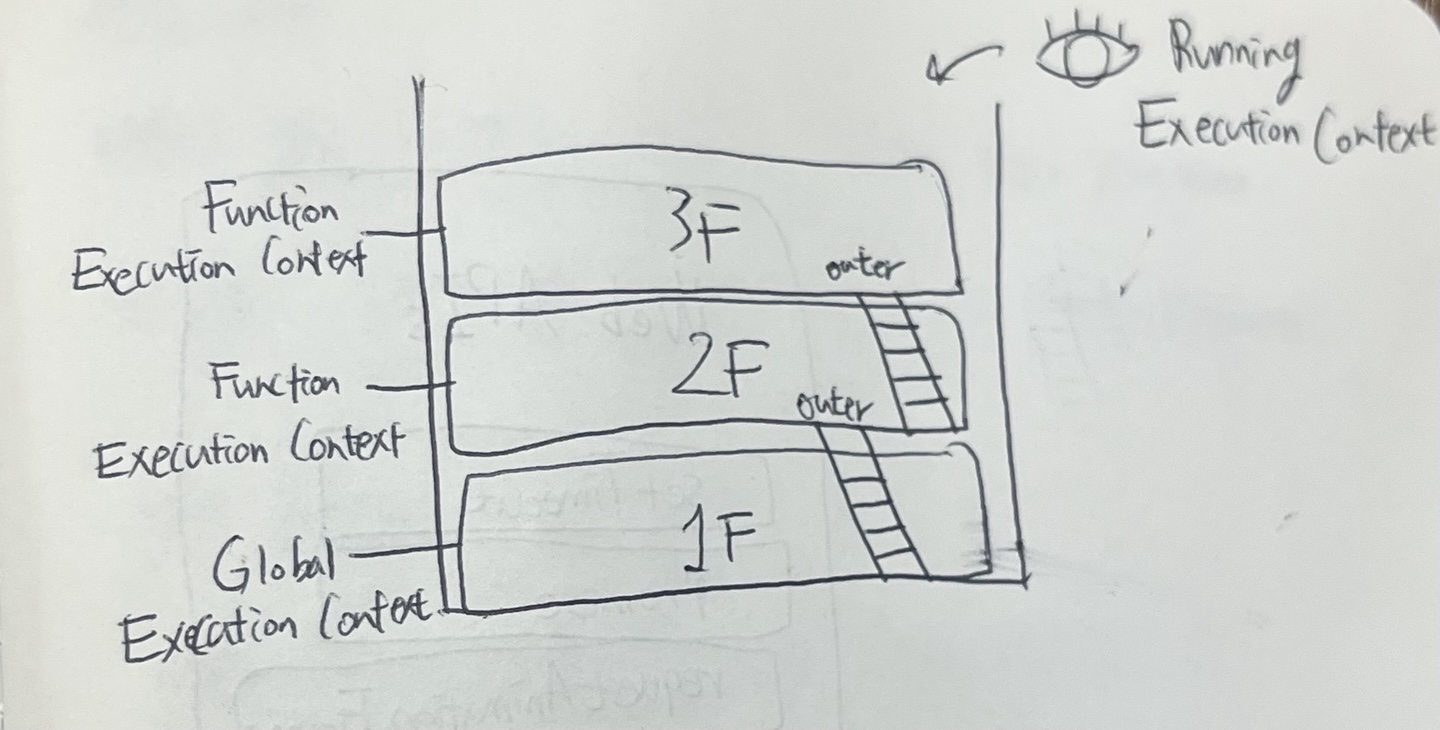 Running
Execution Context
Function
Execution Context
3F
outer
Function
Execution Context
2F
outer
Global
Execution Context
1F